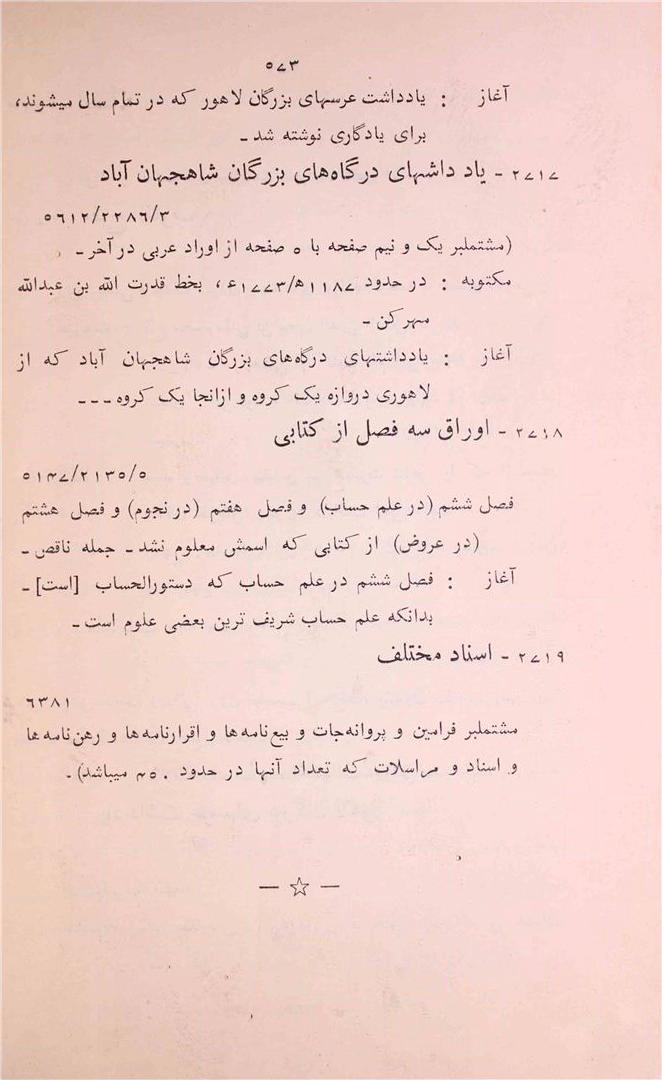 ۵۷۳
آغاز : یادداشت عرسهای بزرگان لاهور که در تمام سال میشوند،
برای یادگاری نوشته شد ـ
۲۷۱۷ - یاد داشهای درگاه‌های بزرگان شاهجهان آباد
۵۶۱۲/۲۲۸۶/۳
(مشتملبر یک و نیم صفحه با ۵ صفحه از اوراد عربی در آخر ـ
مکتوبه : در حدود ۱۱۸۷ھ/۱۷۷۳ء، بخط قدرت الله بن عبدالله
مهرکن ـ
آغاز : یادداشتهای درگاه‌های بزرگان شاهجهان آباد که از
لاهوری دروازه یک کروه و ازانجا یک کروه ـ ـ ـ
۲۷۱۸ - اوراق سه فصل از کتابی
۵۱۴۷/۲۱۳۵/۵
فصل ششم (در علم حساب) و فصل هفتم (در نجوم) و فصل هشتم
(در عروض) از کتابی که اسمش معلوم نشد ـ جمله ناقص ـ
آغاز : فصل ششم در علم حساب که دستورالحساب [است] ـ
بدانکه علم حساب شریف ترین بعضی علوم است ـ
۲۷۱۹ - اسناد مختلف
۶۳۸۱
مشتملبر فرامین و پروانه‌جات و بیع‌نامه‌ها و اقرارنامه‌ها و رهن‌نامه‌ها
و اسناد و مراسلات که تعداد آنها در حدود ۴۵۰ میباشد) ـ
— ☆ —